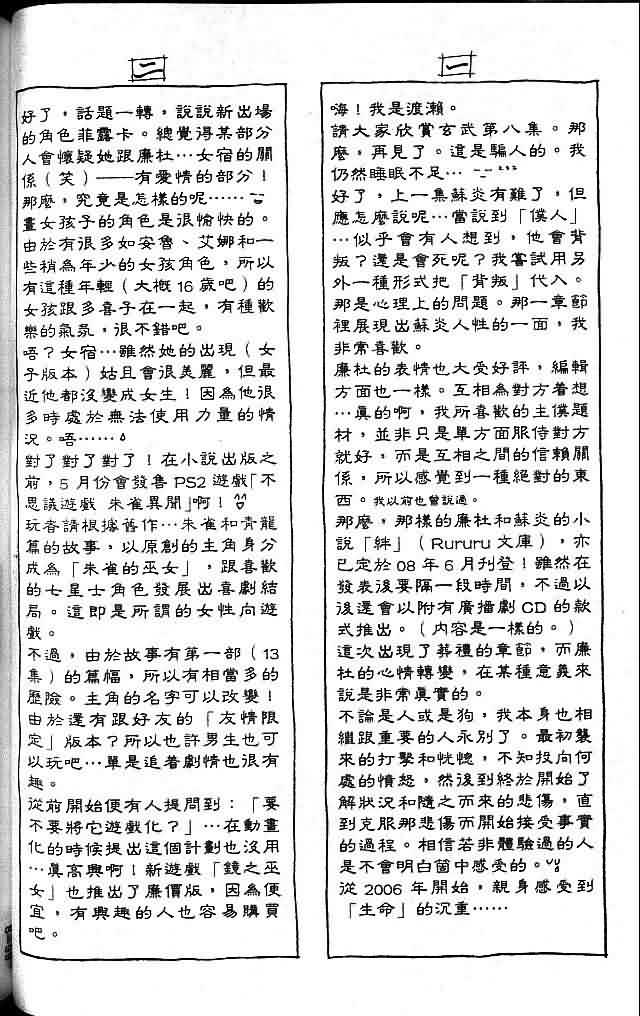 一
嗨！我是渡瀨。
請大家欣賞玄武第八集。那
麼，再見了。這是騙人的。我
仍然睡眠不足…
好了，上一集蘇炎有難了，但
應怎麼說呢…當說到「僕人」
…似乎會有人想到，他會背
叛？還是會死呢？我嘗試用另
外一種形式把「背叛」代入。
那是心理上的問題。那一章節
裡展現出蘇炎人性的一面，我
非常喜歡。
廉杜的表情也大受好評，編輯
方面也一樣。互相為對方着想
…真的啊，我所喜歡的主僕題
材，並非只是單方面服侍對方
就好，而是互相之間的信賴關
係，所以感覺到一種絕對的東
西。我以前也曾說過。
那麼，那樣的廉杜和蘇炎的小
說「絆」（Rururu文庫），亦
已定於08年6月刊登！雖然在
發表後要隔一段時間，不過以
後還會以附有廣播劇CD的款
式推出。（內容是一樣的。）
這次出現了葬禮的章節，而廉
杜的心情轉變，在某種意義來
說是非常真實的。
不論是人或是狗，我本身也相
繼跟重要的人永別了。最初襲
來的打擊和恍惚，不知投向何
處的憤怒，然後到終於開始了
解狀況和隨之而來的悲傷，直
到克服那悲傷而開始接受事實
的過程。相信若非體驗過的人
是不會明白箇中感受的。
從2006年開始，親身感受到
「生命」的沉重……
二
好了，話題一轉，說說新出場
的角色菲露卡。總覺得某部分
人會懷疑她跟廉杜…女宿的關
係（笑）——有愛情的部分！
那麼，究竟是怎樣的呢……
畫女孩子的角色是很愉快的。
由於有很多如安魯、艾娜和一
些稍為年少的女孩角色，所以
有這種年輕（大概16歲吧）的
女孩跟多喜子在一起，有種歡
樂的氣氛，很不錯吧。
唔？女宿…雖然她的出現（女
子版本）姑且會很美麗，但最
近他都沒變成女生！因為他很
多時處於無法使用力量的情
況。唔……
對了對了對了！在小說出版之
前，5月份會發售PS2遊戲「不
思議遊戲 朱雀異聞」啊！
玩者請根據舊作…朱雀和青龍
篇的故事，以原創的主角身分
成為「朱雀的巫女」，跟喜歡
的七星士角色發展出喜劇結
局。這即是所謂的女性向遊
戲。
不過，由於故事有第一部（13
集）的篇幅，所以有相當多的
歷險。主角的名字可以改變！
由於還有跟好友的「友情限
定」版本？所以也許男生也可
以玩吧…單是追着劇情也很有
趣。
從前開始便有人提問到：「要
不要將它遊戲化？」…在動畫
化的時候提出這個計劃也沒用
…真高興啊！新遊戲「鏡之巫
女」也推出了廉價版，因為便
宜，有興趣的人也容易購買
吧。